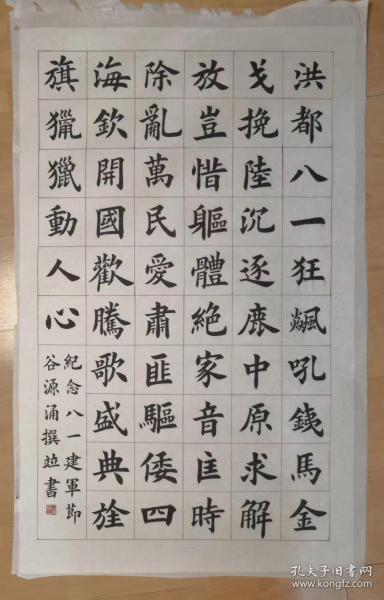 洪都八一狂飆吼銕馬金
戈挽陸沉逐鹿中原求解
放豈惜軀體絕家音匡時
除亂萬民愛肅匪驅倭四
海欽開國歡騰歌盛典旌
旗獵獵動人心
紀念八一建軍節
谷源涌撰竝書
孔夫子旧书网
www.kongfz.com